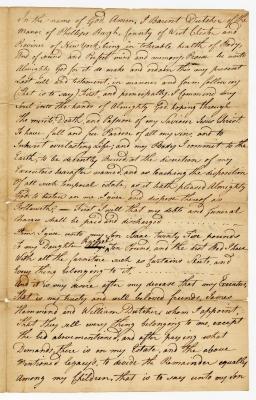 In the name of God Amen, I Barent Dutcher of the
Manor of Phillips Burgh, County of West Chester and
Province of New York being in tolerable health of Body,
And of sound and perfect mind and memory; Praise be unto
Almighty God for it do make and ordain this my present
Last will And testament, in manner and form following
(that is to say) First and principally, I Commend my
Soul into the hands of Almighty God hoping through
the merits, Death, and Passion of my Saviour Jesus Christ
To have full and free Pardon of all my sins, and to
Inherit everlasting Life; and my Body I commit to the
Earth, to be decently buried at the discretion of my
Executors hereafter named, and as touching the disposition
Of all such temporal estate, as it hath pleased Almighty
God to bestow on me I give and dispose thereof as
Followeth, — First I will that my debts and funeral
Charges shall be paid and discharged
Item I give unto my Son Isaac twenty five pounds
To my Daughter ten Pounds and the best Bed I have
With all the furniture such as Curtains
thing belonging to it
And it is my desire after my decease that my Executors
that is my trusty and well beloved friends, James
Hammond and William Dutcher whom I appoint,
That they sell every thing belonging to me, except
the bed abovementioned, and after paying what
Demands there is on my Estate, and the above
Mentioned legacys, to divide the Remainder equally
Among my Children, that is to say unto my Son